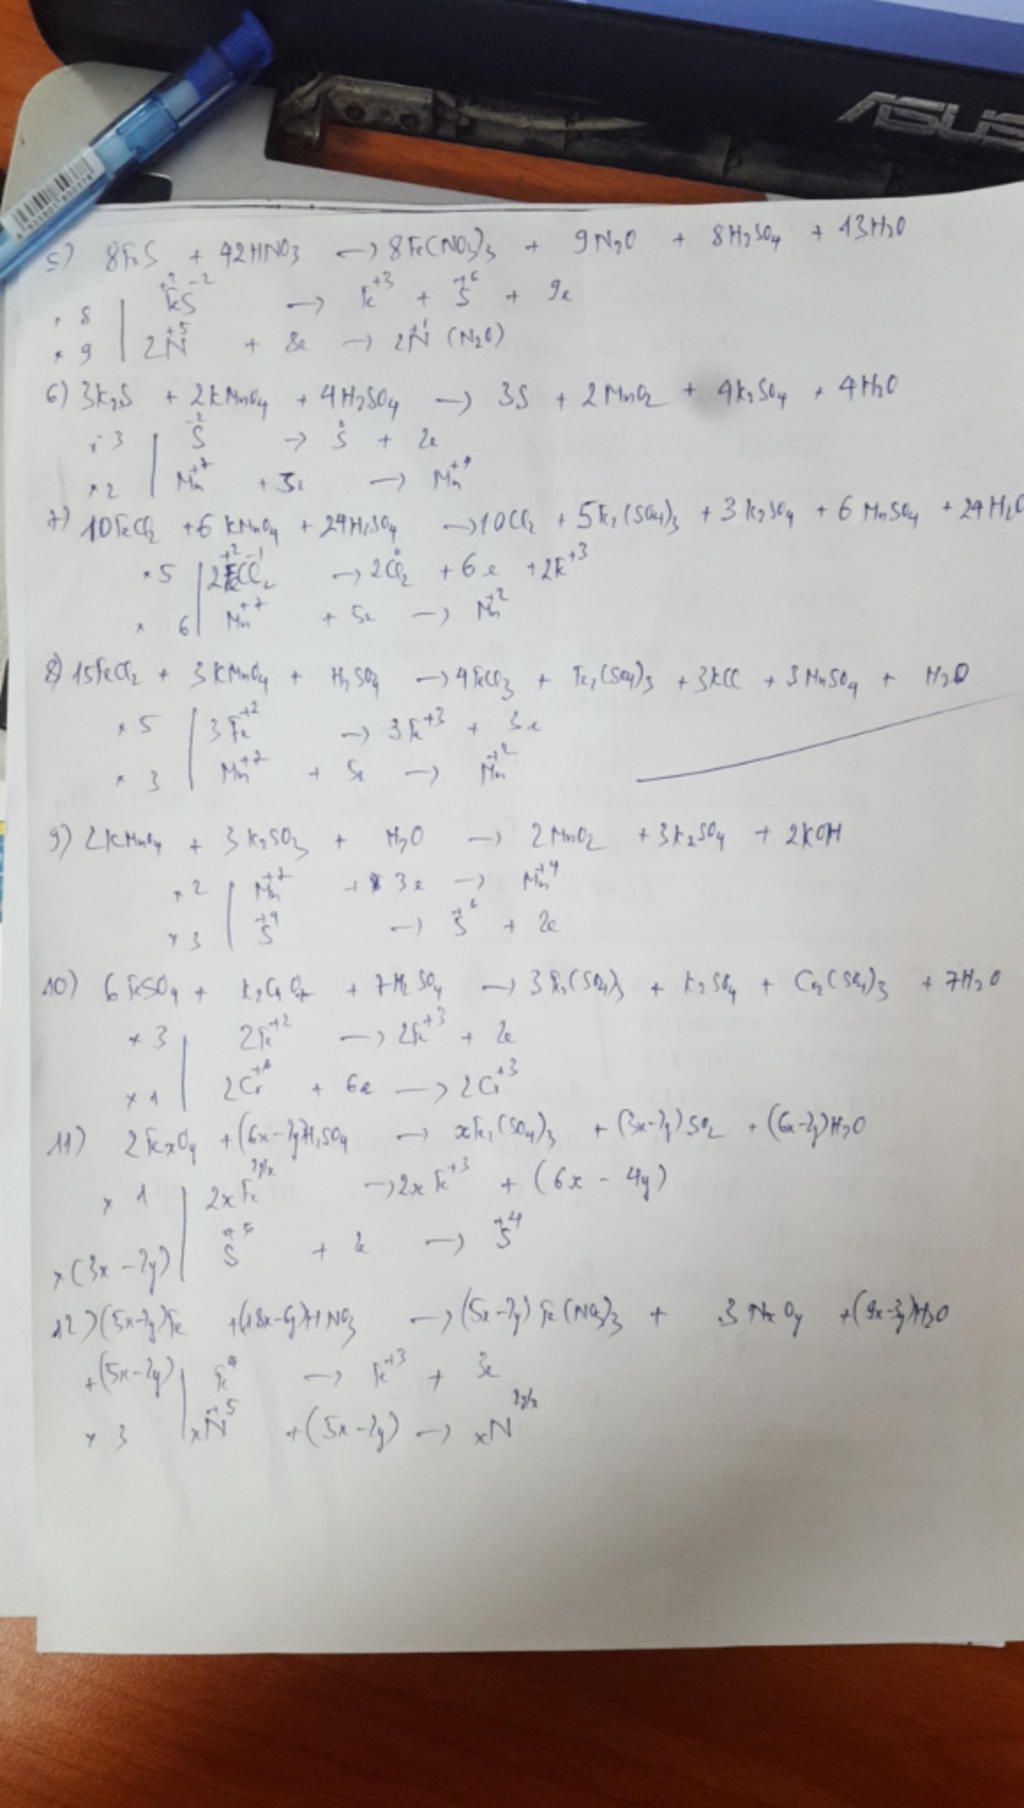 ASUS
5) 8FeS + 42HNO3 → 8Fe(NO3)3 + 9N2O + 8H2SO4 + 13H2O
× 8 | +2 FeS -2 → Fe+3 + S+6 + 9e
× 9 | 2N+5 + 8e → 2N+1 (N2O)
6) 3K2S + 2KMnO4 + 4H2SO4 → 3S + 2MnO2 + 4K2SO4 + 4H2O
× 3 | S-2 → S0 + 2e
× 2 | Mn+7 + 3e → Mn+4
7) 10FeCl2 + 6KMnO4 + 24H2SO4 → 10Cl2 + 5Fe2(SO4)3 + 3K2SO4 + 6MnSO4 + 24H2O
× 5 | 2Fe+2Cl-12 → 2Cl02 + 6e + 2Fe+3
× 6 | Mn+7 + 5e → Mn+2
8) 15FeCl2 + 3KMnO4 + H2SO4 → 4FeCl3 + Fe2(SO4)3 + 3KCl + 3MnSO4 + H2O
× 5 | 3Fe+2 → 3Fe+3 + 3e
× 3 | Mn+7 + 5e → Mn+2
9) 2KMnO4 + 3K2SO3 + H2O → 2MnO2 + 3K2SO4 + 2KOH
× 2 | Mn+7 + 3e → Mn+4
× 3 | S+4 → S+6 + 2e
10) 6FeSO4 + K2Cr2O7 + 7H2SO4 → 3Fe2(SO4)3 + K2SO4 + Cr2(SO4)3 + 7H2O
× 3 | 2Fe+2 → 2Fe+3 + 2e
× 1 | 2Cr+6 + 6e → 2Cr+3
11) 2FexOy + (6x-2y)H2SO4 → xFe2(SO4)3 + (3x-2y)SO2 + (6x-2y)H2O
× 1 | 2xFe2y/x → 2xFe+3 + (6x - 4y)
×(3x-2y) | S+6 + 2e → S+4
12) (5x-2y)Fe + (18x-6y)HNO3 → (5x-2y)Fe(NO3)3 + 3NxOy + (9x-3y)H2O
×(5x-2y) | Fe0 → Fe+3 + 3e
× 3 | xN+5 + (5x-2y) → xN2y/x